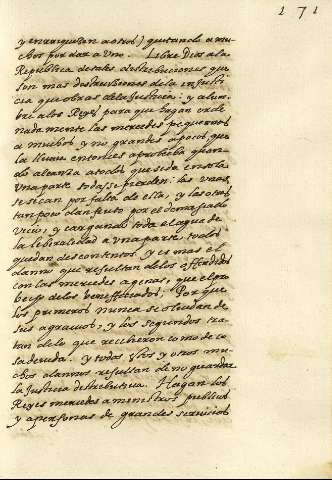 171
y enrriquezan a otros) quitando a mu
chos por dar a Uno. Libre Dios a la
Republica de tales destribuciones que
son mas destruiciones de la injusti
cia que obras de la Justicia: y alum
bre a los Reyes para que hagan orde
nadamente las mercedes pequeñas
a muchos y no grandes a pocos, que
la lluvia entonces aprobecha quan
do alcanza a todos que si da en sola
Una parte todas se pierden: las Unas
se sican por falta de ella, y las otras
tanpoco dan fruto por el demasiado
vicio, y cargando toda el agua de
la leberalidad a Una parte, todos
quedan descontentos y es mas el
danno que resultan de los offendidos
con las mercedes agenas, que el pro
becho de los beneffiados; Por que
los primeros nunca se olvidan de
sus agravios, y los segundos tra
tan de lo que recibieron como de co
sa devida. y todos estos y otros mu
chos dannos resultan de no guardar
la Justicia destributiva. Hagan los
Reyes mercedes a menistros publicos
y a personas de grandes servicios